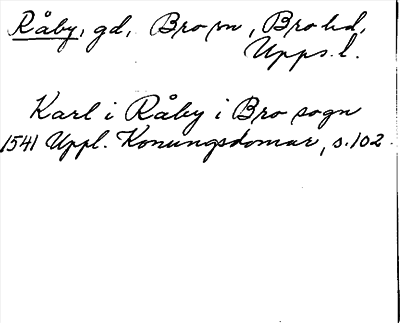 Råby, gd, Bro sn, Bro hd,
Upps. l.
Karl i Råby i Bro sogn
1541 Uppl. Konungsdomar, s. 102.